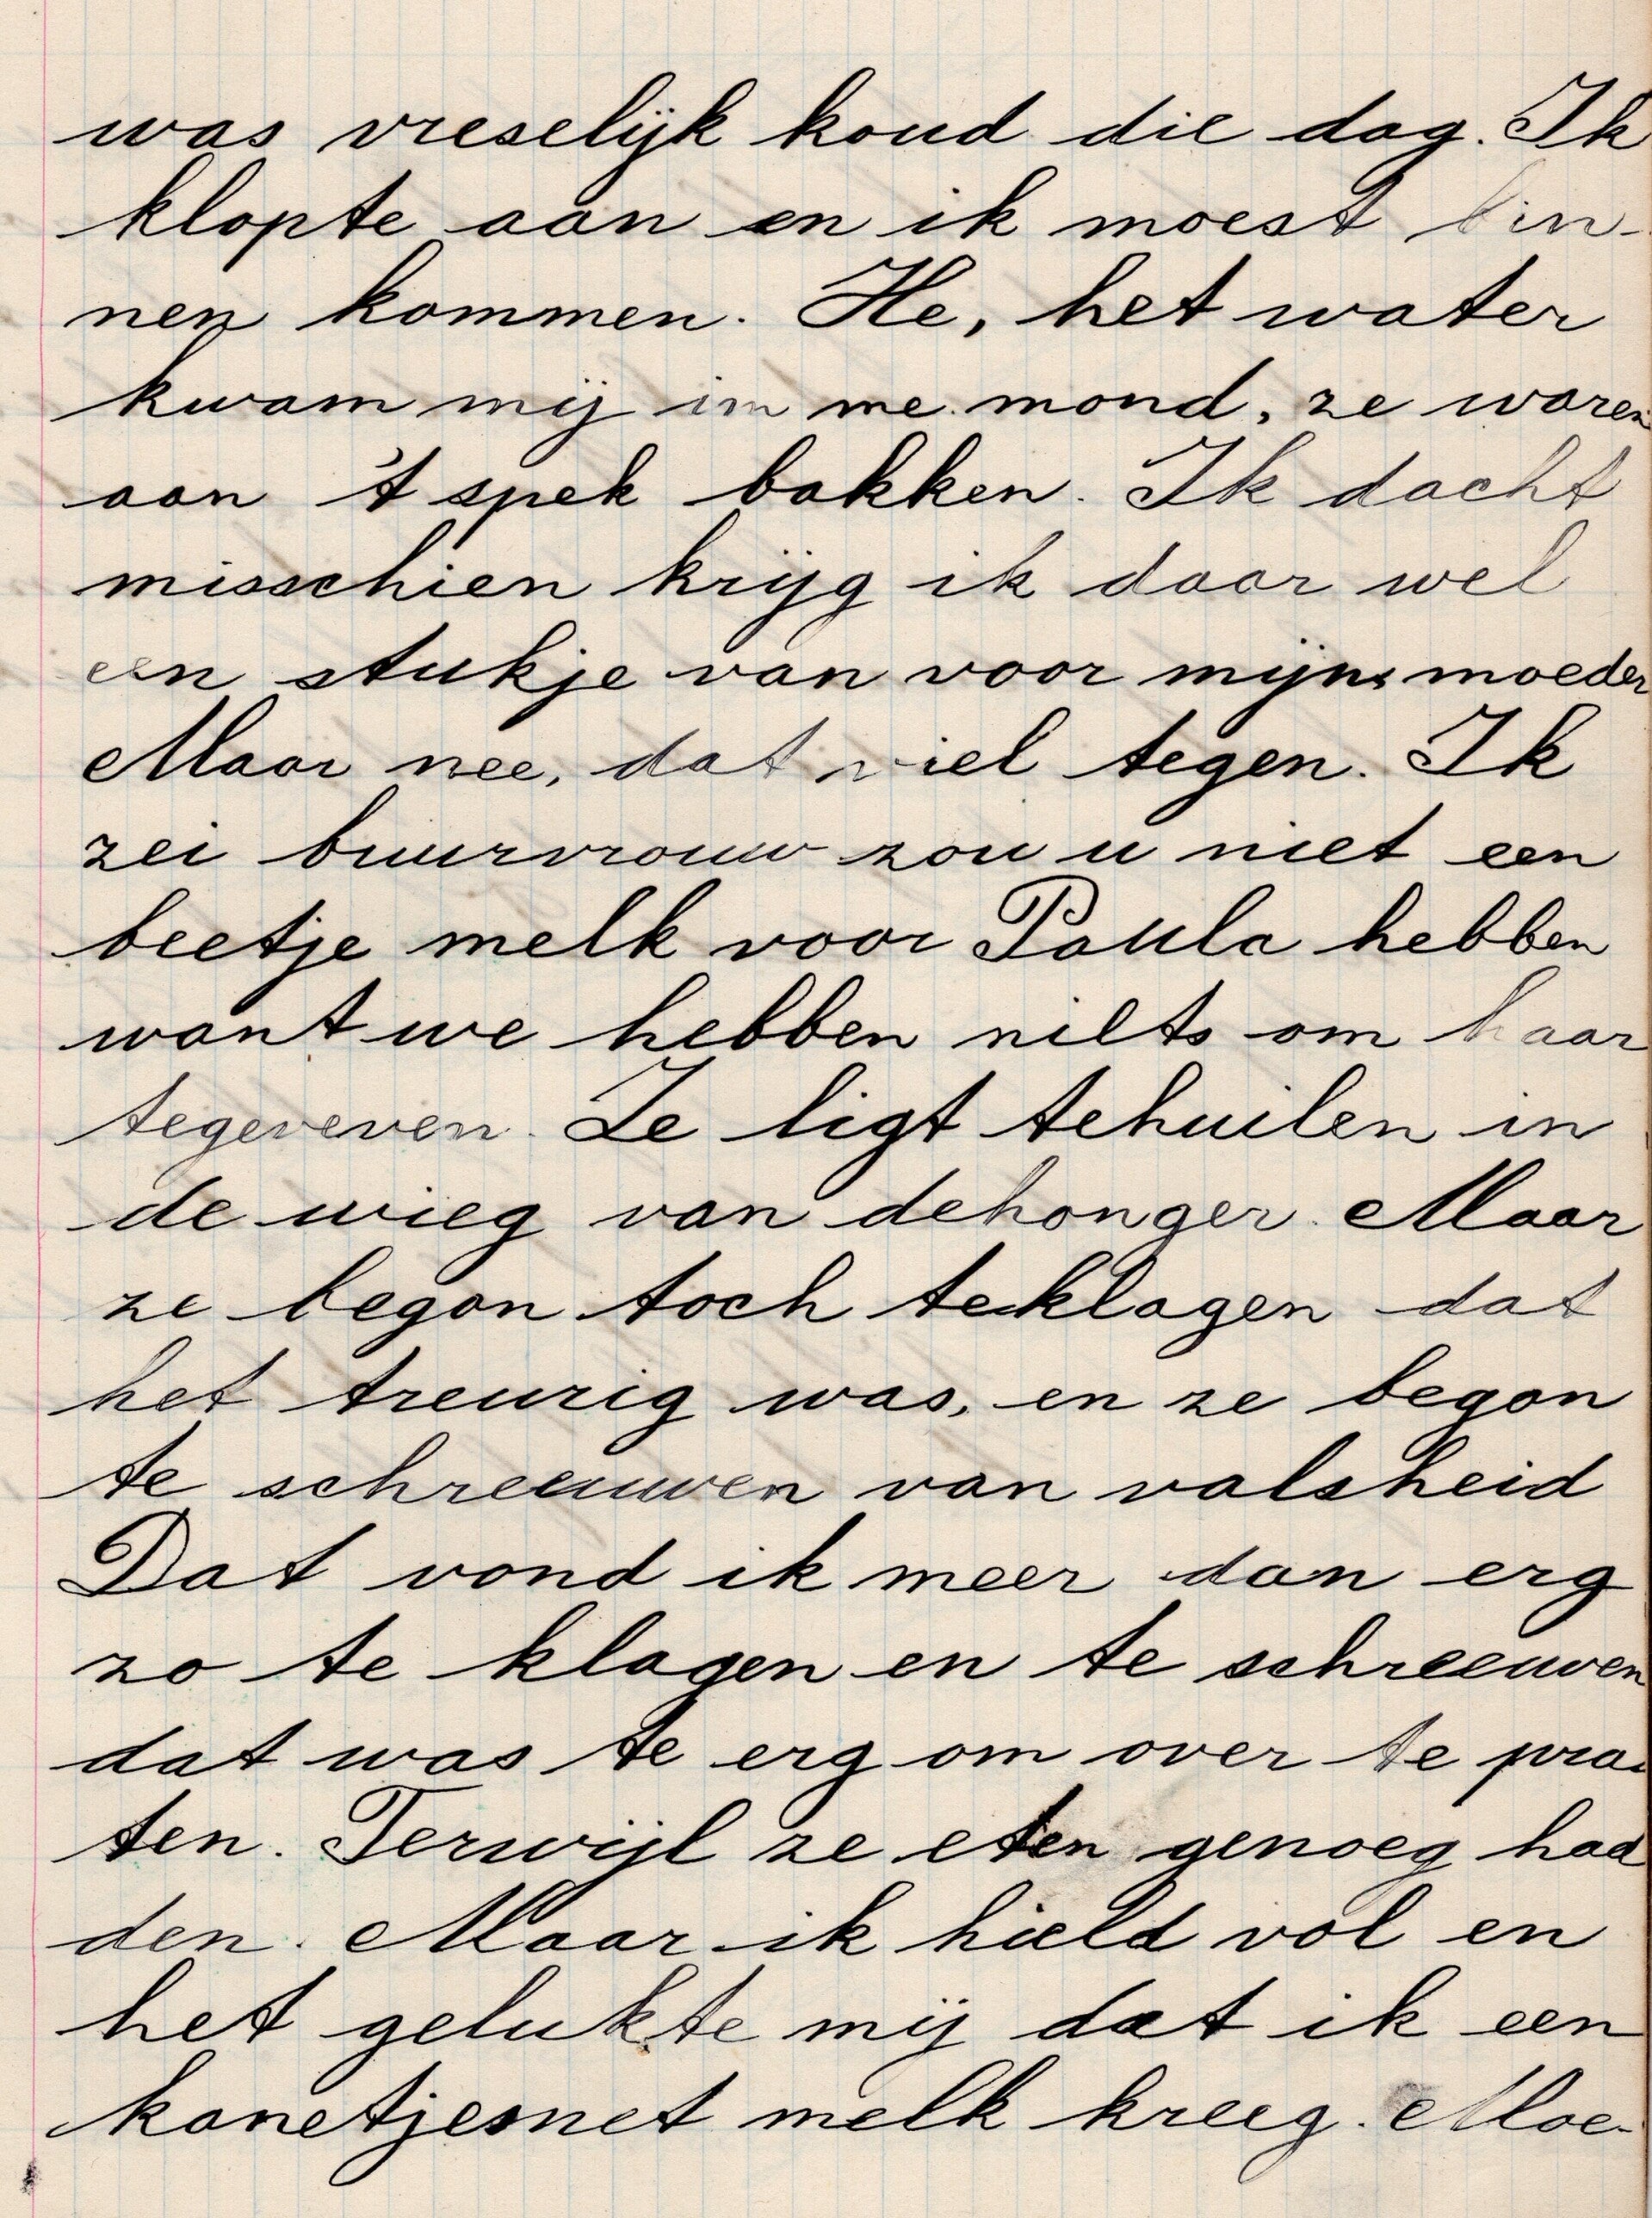 was vreselijk koud die dag. Ik
klopte aan en ik moest bin-
nen kommen. He, het water
kwam mij in me mond, ze waren
aan 't spek bakken. Ik dacht
misschien krijg ik daar wel
een stukje van voor mijn moeder
Maar nee, dat viel tegen. Ik
zei buurvrouw zou u niet een
beetje melk voor Paula hebben
want we hebben niets om haar
tegeveven. Ze ligt tehuilen in
de wieg van dehonger. Maar
ze begon toch teklagen dat
het treurig was, en ze begon
te schreeuwen van valsheid
Dat vond ik meer dan erg
zo te klagen en te schreeuwen
dat was te erg om over te pra-
ten. Terwijl ze eten genoeg had
den. Maar ik hield vol en
het gelukte mij dat ik een
kanetjemet melk kreeg. Moe-